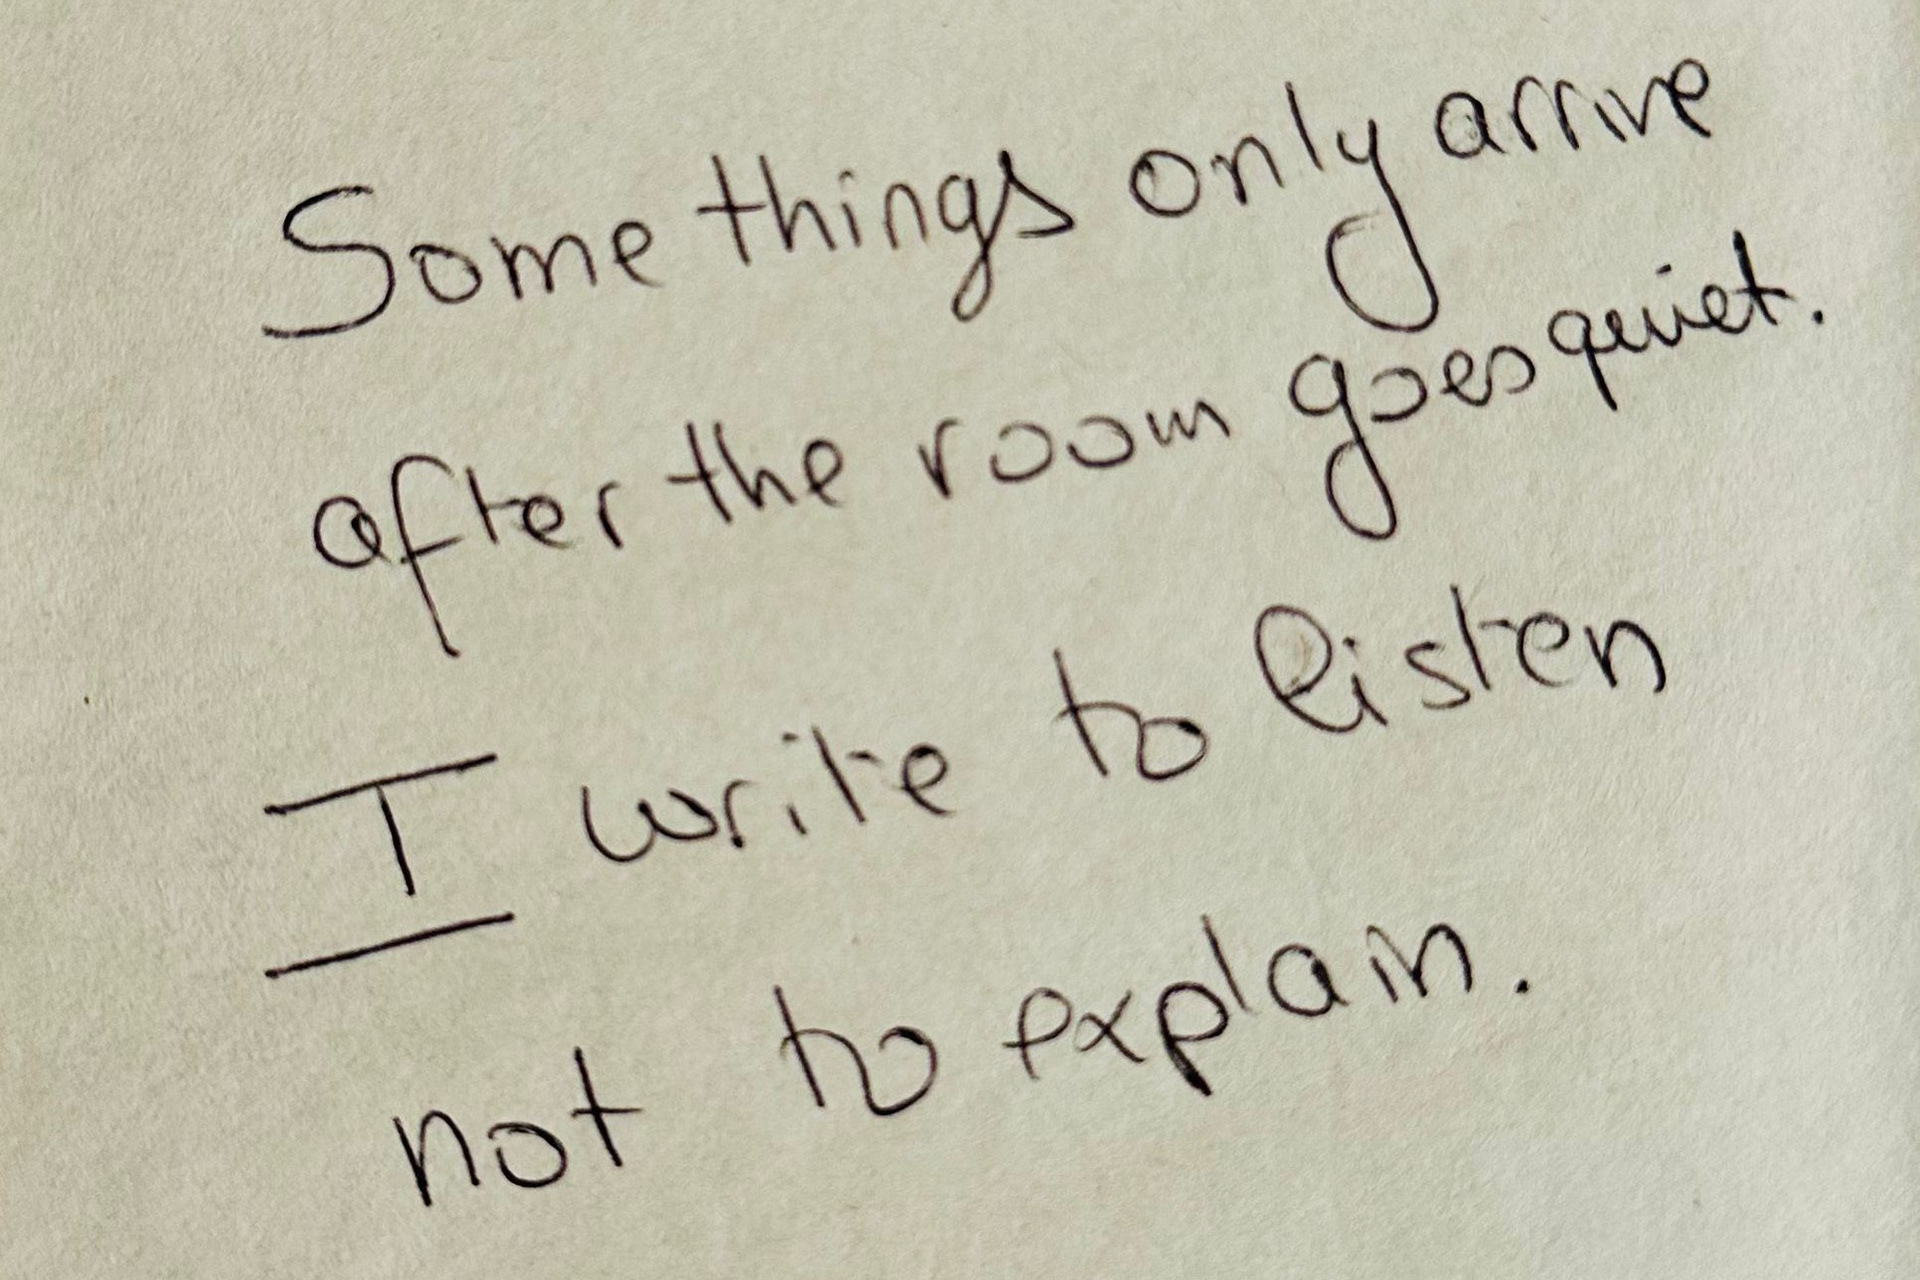 Some things only arrive
after the room goes quiet.
I write to listen
not to explain.